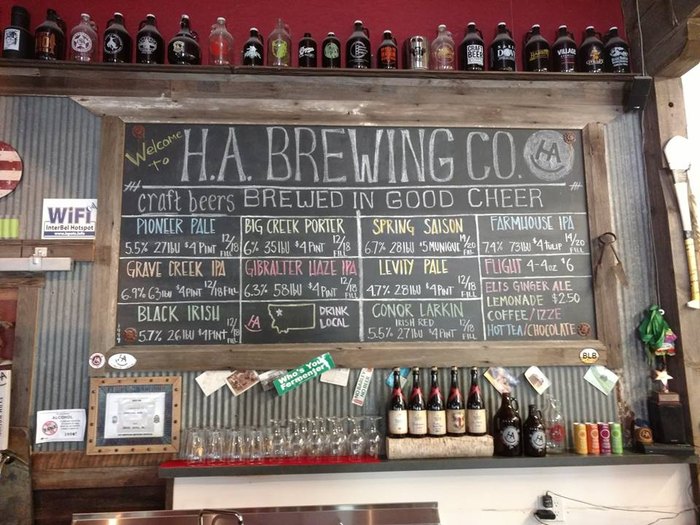 Welcome to
H.A. BREWING CO.
HA
craft beers BREWED IN GOOD CHEER
PIONEER PALE
5.5% 27IBU $4 PINT 12/18 FILL
BIG CREEK PORTER
6% 35IBU $4 PINT 12/18 FILL
SPRING SAISON
6.7% 28IBU $5 MUNIQUE 14/20 FILL
FARMHOUSE IPA
7.4% 73IBU $4 TULIP 14/20 FILL
GRAVE CREEK IPA
6.9% 63IBU $4 PINT 12/18 FILL
GIBRALTER HAZE IPA
6.3% 58IBU $4 PINT 12/18 FILL
LEVITY PALE
4.7% 28IBU $4 PINT 12/18 FILL
FLIGHT 4-4oz $6
BLACK IRISH
5.7% 26IBU $4 PINT 12/18 FILL
HA
DRINK
LOCAL
CONOR LARKIN
IRISH RED
5.5% 27IBU $4 PINT 12/18 FILL
ELI'S GINGER ALE
LEMONADE $2.50
COFFEE/IZZE
HOT TEA/CHOCOLATE
WiFi
InterBel Hotspot
Who's Your
Fermenter?
BLB
ALCOHOL
CRAFT
BEER
VILLAGE